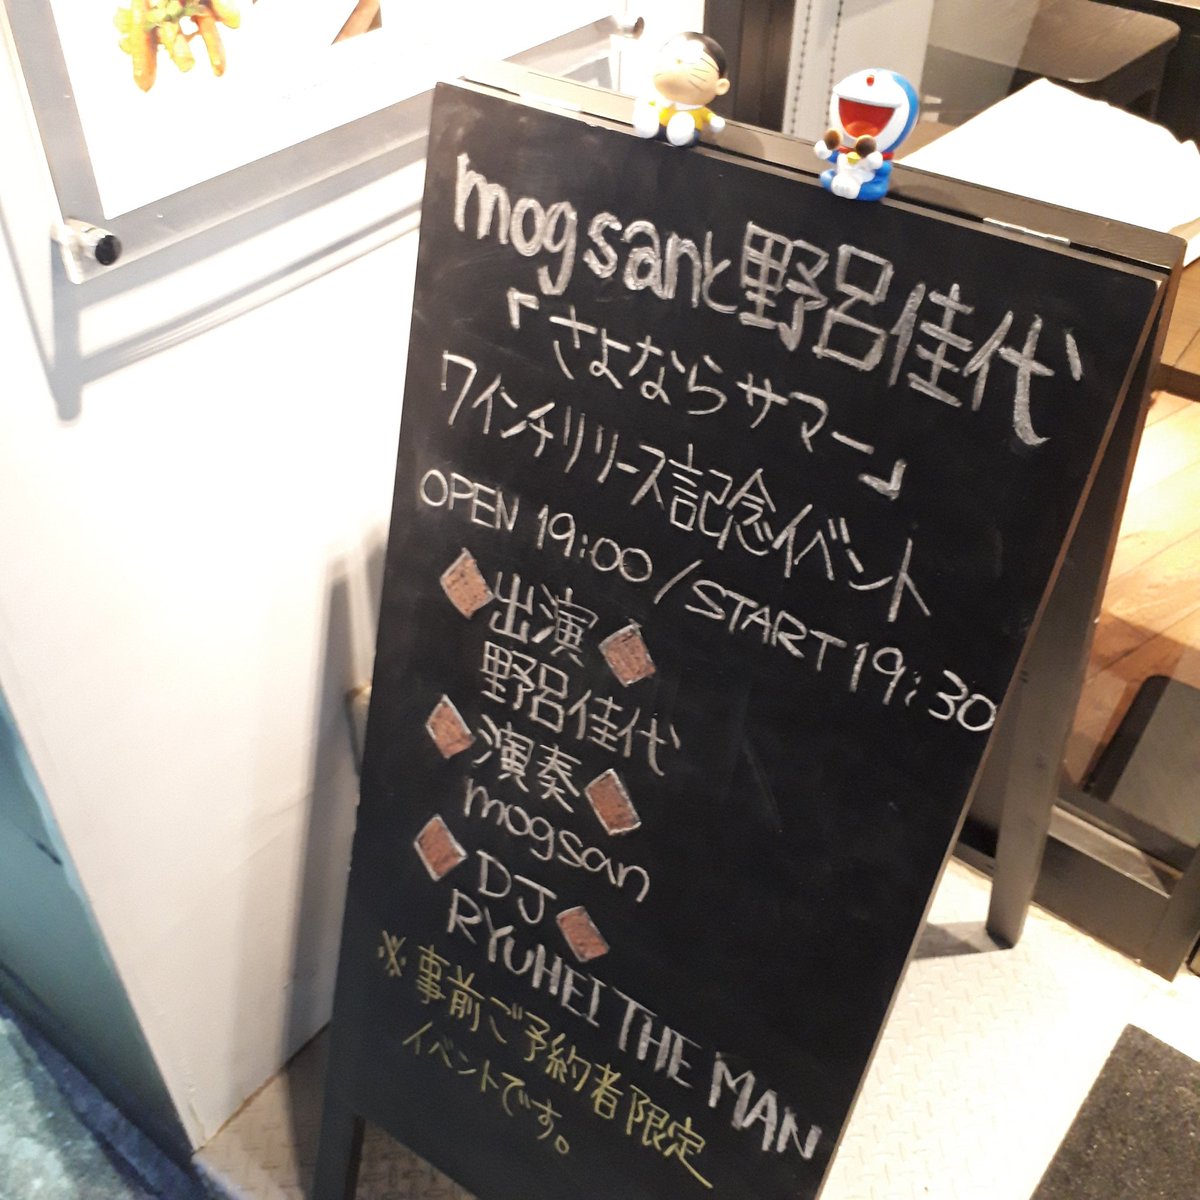 mogsanと野呂佳代
『さよならサマー』
7インチリリース記念イベント
OPEN 19:00/START 19:30
出演
野呂佳代
演奏
mogsan
DJ
RYUHEI THE MAN
※事前ご予約者限定
イベントです。